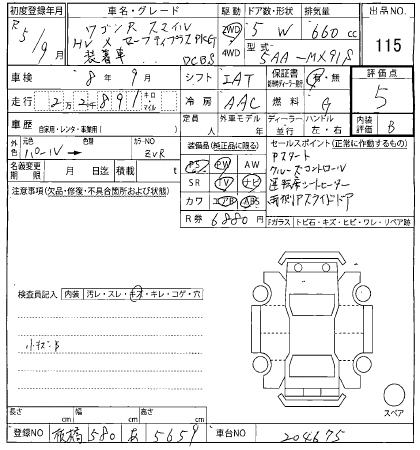 初度登録年月 車名・グレード 駆動 ドア数・形状 排気量 出品NO.
R5/9月 ワゴンR スマイル 2WD 5 W 660 cc 115
HV X セーフティプラスPKG 4WD 型式
装着車 DCBS 5AA-MX91S
車検 8年9月 シフト IAT 保証書 有・無 評価点
走行 2万2千891 キロ・マイル 冷房 AAC 燃料 G 5
車歴 自家用・レンタ・事業用( ) 定員 人 外車モデル 年 ディーラー 並行 ハンドル 左・右 内装評価 B
外色 元色 → 色替 カラーNO ZVR 装備品(純正品に限る) セールスポイント(正常に作動するもの)
名義変更期限 月 日迄 積載 t PS PW AW Pスタート
注意事項(欠品・修復・不具合箇所および状態) SR TV ナビ クルーズコントロール
カワ エアB ABS 運転席シートヒーター
R券 6880円 両側Pスライドドア
Fガラス トビ石・キズ・ヒビ・ワレ・リペア跡
検査員記入 内装 汚レ・スレ・キズ・キレ・コゲ・穴
小キズ
スペア
長さ cm 幅 cm 高さ cm
登録NO 板橋 580 あ 5659 車台NO 204675